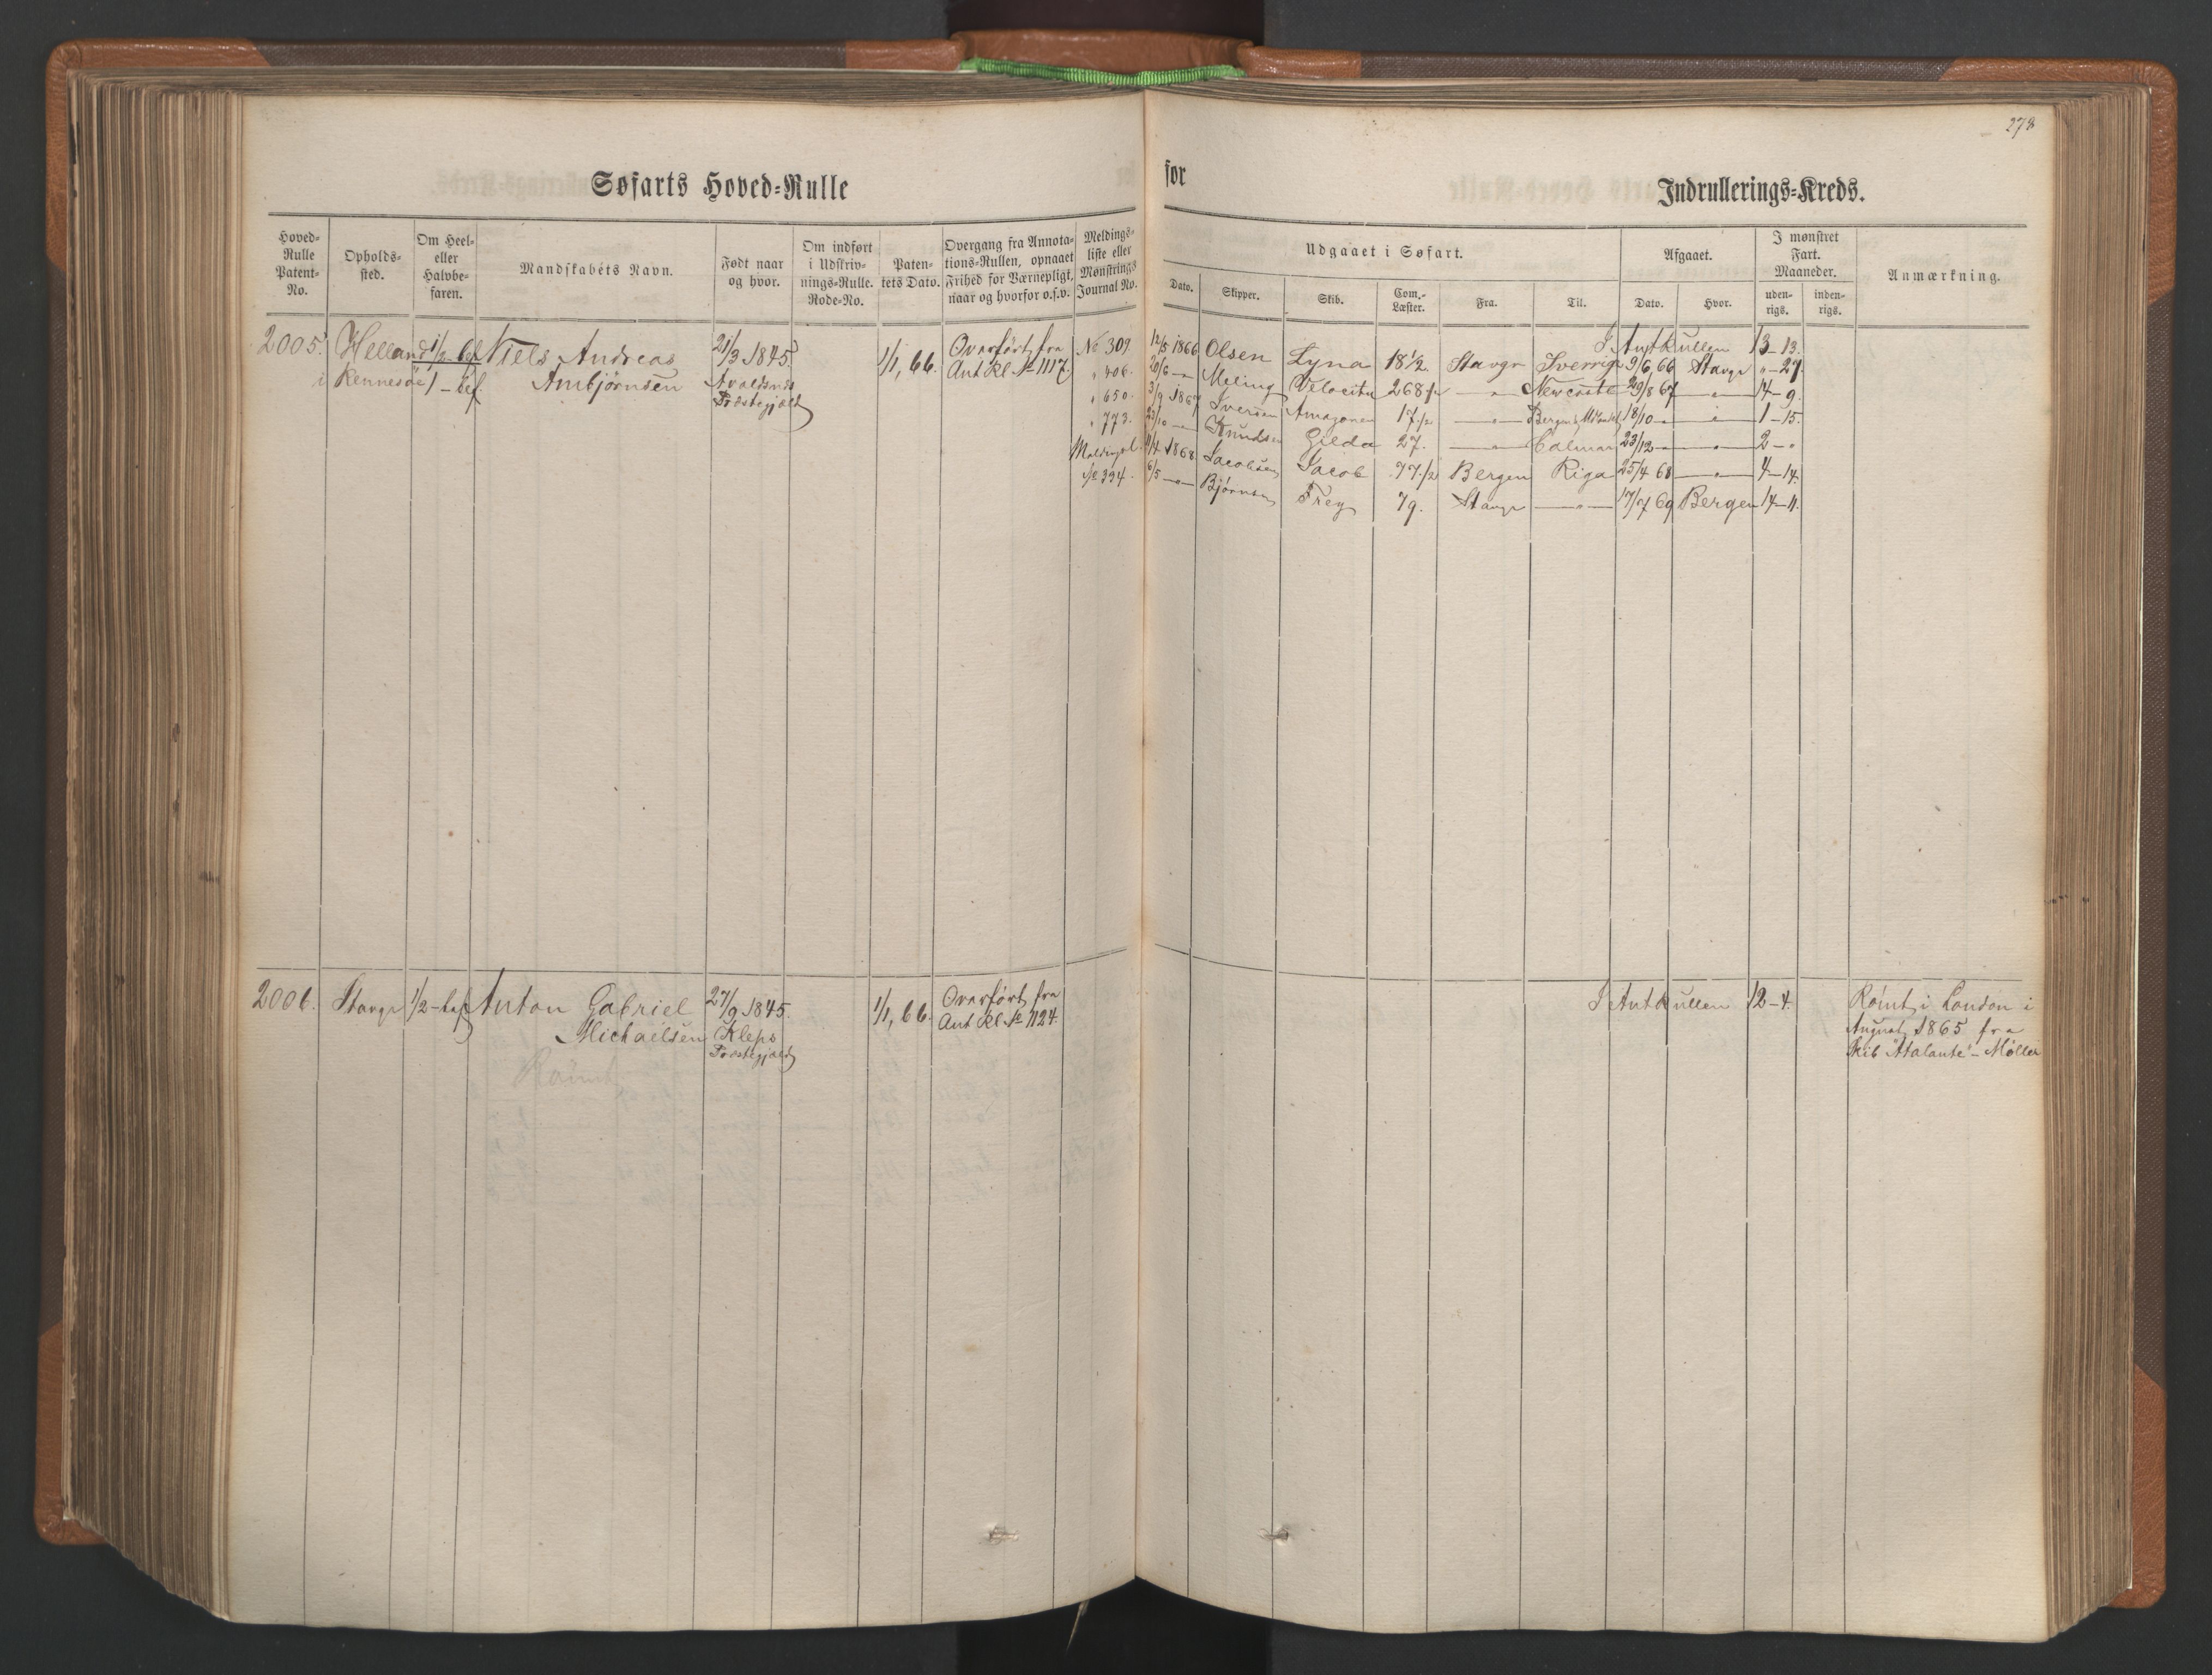 278
Søfarts Hoved-Rulle for Indrullerings-Kreds.
Hoved-Rulle Patent-No.
Opholds-sted.
Om Heel- eller Halvbe-faren.
Mandskabets Navn.
Født naar og hvor.
Om indført i Udskriv-nings-Rulle. Rode-No.
Paten-tets Dato.
Overgang fra Annota-tions-Rullen, opnaaet Frihed for Værnepligt, naar og hvorfor o.s.v.
Meldings-liste eller Mønstrings Journal No.
Udgaaet i Søfart.
Dato.
Skipper.
Skib.
Com.-Læster.
Fra.
Til.
Afgaaet.
Dato.
Hvor.
I mønstret Fart. Maaneder.
uden-rigs.
inden-rigs.
Anmærkning.
2005. Helland 1/2 bef Niels Andreas 21/3 1845. 1/1, 66. Overført fra
i Rennesöe 1 - bef. Ambjørnsen Avaldsnes Ant Rl. № 1117.
Præstegjæld
I Ant Rullen 13-13.
№ 309. 12/5 1866 Olsen Lyna 18 1/2 Stavgr Sverrig 9/6, 66 Stavgr "-27.
" 406. 20/6 -"- Meling Velocitu 268 1/2 -"- Newcastle 29/8 67 -"- 14-9.
" 650. 3/9 1867 Iversen Amazonen 17 1/2 -"- Bergen 18/10 -"- 1-15.
" 773. 23/10 -"- Knudsen Gilda 27. -"- Calmar 23/12 -"- 2-"
11/4 1868 Jacobsen Jacob 77 1/2 Bergen Riga 25/4 68 -"- 4-14.
№ 394. 6/5 -"- Bjørnsen Frey 79. Stavgr -"- 17/7 69 Bergen 14-11.
2006. Stavgr 1/2-bef Anton Gabriel 27/9 1845. 1/1, 66. Overført fra
Michaelsen Kleps Ant Rl. № 1124.
Præstegjæld
Rømt
I Ant Rullen 12-4. Rømt i London i
August 1865 fra
Skib "Atalante" - Møller